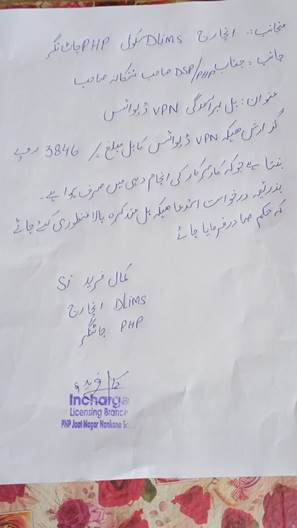 منجانب:۔ انچارج DLIMS سکول PHP جاٹنگر
جانب:۔ جناب DSP/PHP صاحب ننکانہ صاحب
عنوان: بل برآمدگی VPN ڈیوائس
گزارش ھیکہ VPN ڈیوائس کا بل مبلغ /3846 روپے
بنتا ہے جو کہ کار سرکار کی انجام دہی میں صرف ہوا ہے۔
بذریعہ درخواست استدعا ھیکہ بل متذکرہ بالا منظوری کیئے جانے
کہ حکم صادر فرمایا جائے
کمال فرید Si
انچارج DLIMS
PHP جاٹنگر
Incharge
Licensing Branch
PHP Jaat Nagar Nankana